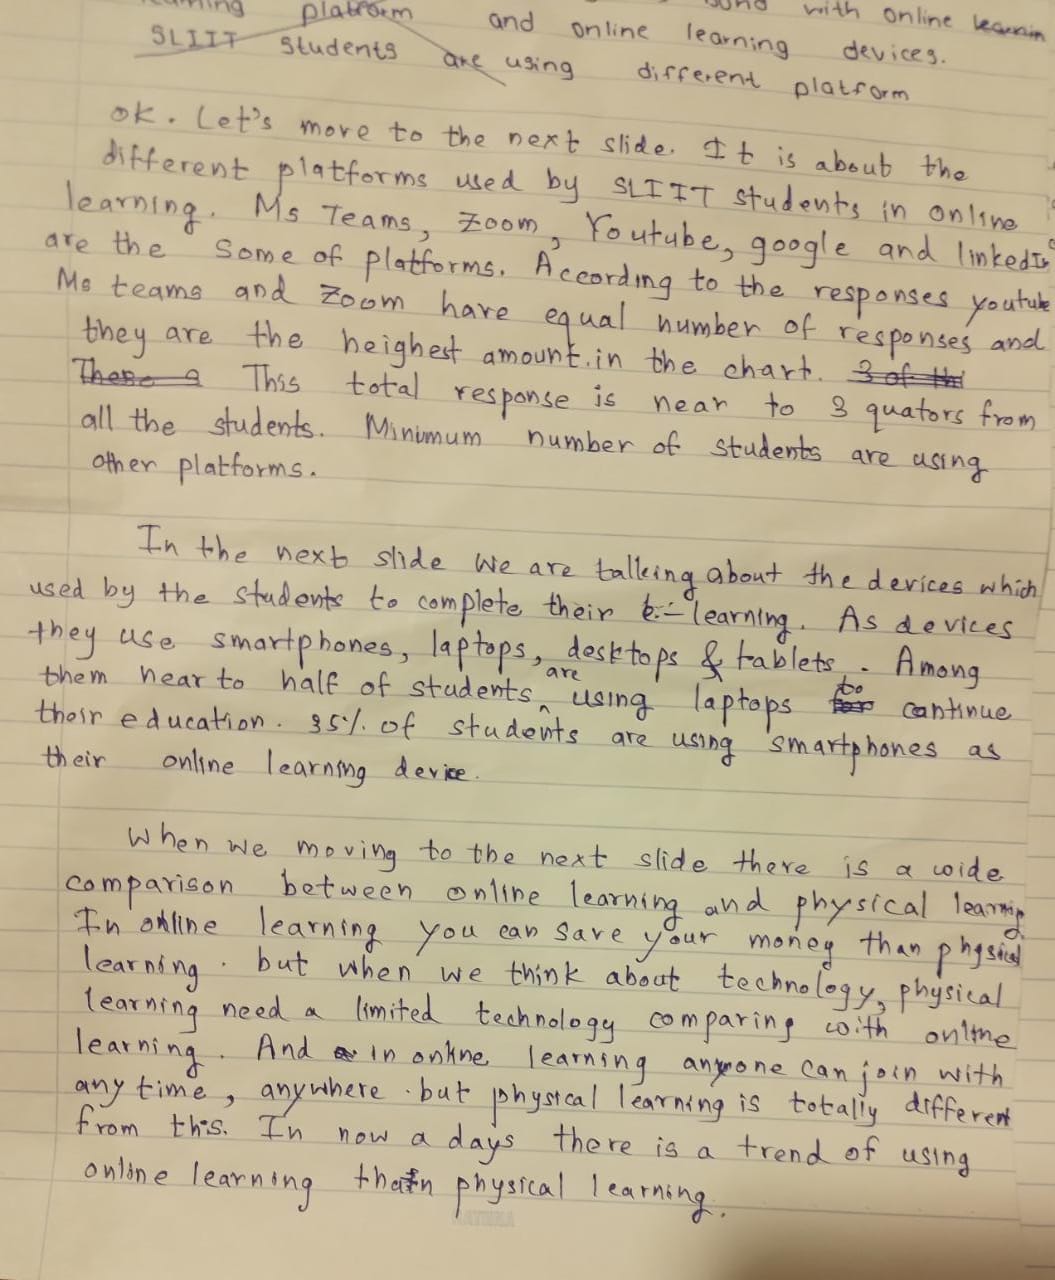 platform and online learning devices. with online learnin
SLIIT students are using different platform
ok. Let's more to the next slide. It is about the
different platforms used by SLIIT students in online
learning. Ms Teams, Zoom, Youtube, google and linkedIn
are the some of platforms. According to the responses youtube
Ms teams and Zoom have equal number of responses and
they are the heighest amount.in the chart. 3 of the
There a This total response is near to 3 quators from
all the students. Minimum number of students are using
other platforms.
In the next slide we are talking about the devices which
used by the students to complete their e-learning. As devices
they use smartphones, laptops, desktops & tablets. Among
them near to half of students are using laptops for to continue
their education. 35% of students are using smartphones as
their online learning device.
When we moving to the next slide there is a wide
comparison between online learning and physical learning
In online learning you can save your money than physical
learning. but when we think about technology, physical
learning need a limited technology comparing with online
learning. And in online learning anyone can join with
any time, anywhere. but physical learning is totally different
from this. In now a days there is a trend of using
online learning than physical learning.